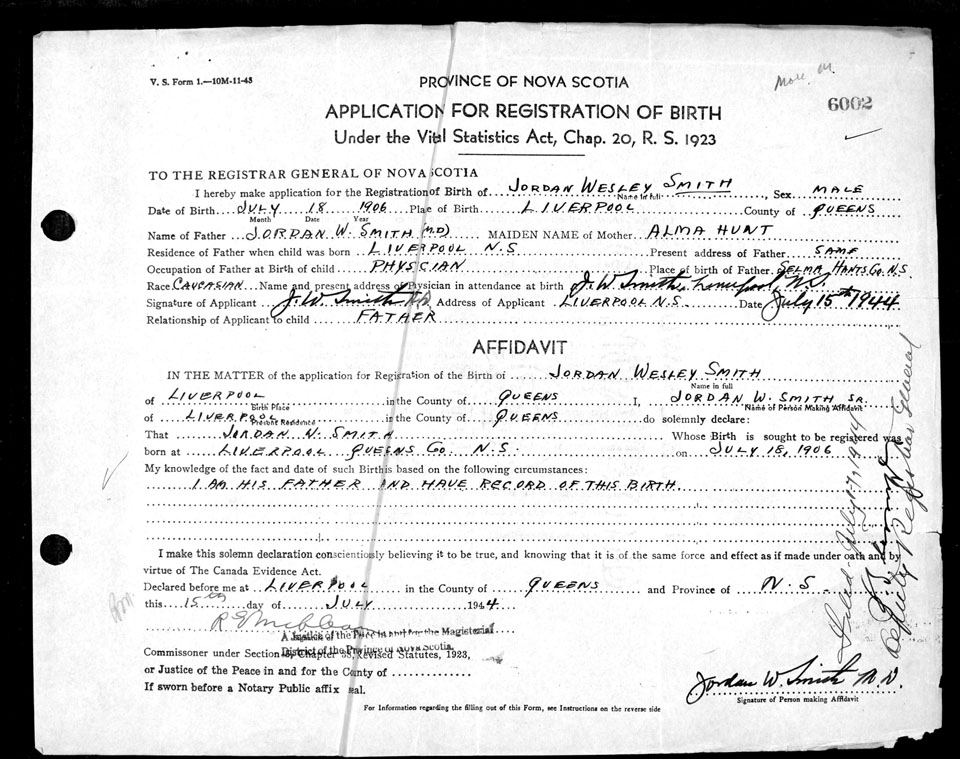 V. S. Form 1.—10M-11-43
PROVINCE OF NOVA SCOTIA
6002
APPLICATION FOR REGISTRATION OF BIRTH
Under the Vital Statistics Act, Chap. 20, R. S. 1923
TO THE REGISTRAR GENERAL OF NOVA SCOTIA
I hereby make application for the Registration of Birth of JORDAN WESLEY SMITH, Sex MALE
Name in full
Date of Birth JULY 18 1906 Place of Birth LIVERPOOL County of QUEENS
Month Date Year
Name of Father JORDAN W. SMITH (M.D) MAIDEN NAME of Mother ALMA HUNT
Residence of Father when child was born LIVERPOOL N.S Present address of Father SAME
Occupation of Father at Birth of child PHYSCIAN Place of birth of Father SELMA HANTS Co. N.S.
Race CAUCASIAN Name and present address of Physician in attendance at birth J. W. Smith, Liverpool, N.S.
Signature of Applicant J. W. Smith M.D. Address of Applicant LIVERPOOL N.S. Date July 15th 1944
Relationship of Applicant to child FATHER
AFFIDAVIT
IN THE MATTER of the application for Registration of the Birth of JORDAN WESLEY SMITH
Name in full
of LIVERPOOL in the County of QUEENS I, JORDAN W. SMITH SR.
Birth Place Name of Person Making Affidavit
of LIVERPOOL in the County of QUEENS do solemnly declare:
Present Residence
That JORDAN W. SMITH Whose Birth is sought to be registered was
born at LIVERPOOL QUEENS Co. N.S. on JULY 18, 1906
My knowledge of the fact and date of such Birth is based on the following circumstances:
I AM HIS FATHER AND HAVE RECORD OF THIS BIRTH.
I make this solemn declaration conscientiously believing it to be true, and knowing that it is of the same force and effect as if made under oath and by
virtue of The Canada Evidence Act.
Declared before me at LIVERPOOL in the County of QUEENS and Province of N.S.
this 15th day of JULY 1944
A Justice of the Peace in and for the Magisterial
District of the Province of Nova Scotia.
Commissioner under Section 3, Chapter 38, Revised Statutes, 1923,
or Justice of the Peace in and for the County of
If sworn before a Notary Public affix seal.
Jordan W. Smith M.D.
Signature of Person making Affidavit
For Information regarding the filling out of this Form, see Instructions on the reverse side
Filed July 17, 1944
Deputy Registrar General